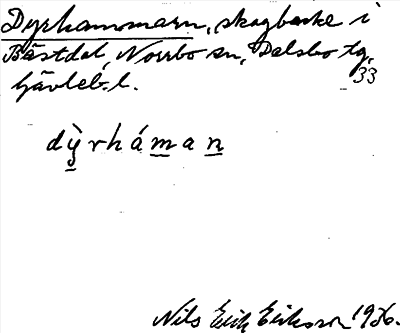 Dyrhammarn, skogbacke i
Bästdal, Norrbo sn, Delsbo tg,
Gävleb. l. 33
dỳ̱rháma̱n
Nils Erik Erikson 1936.